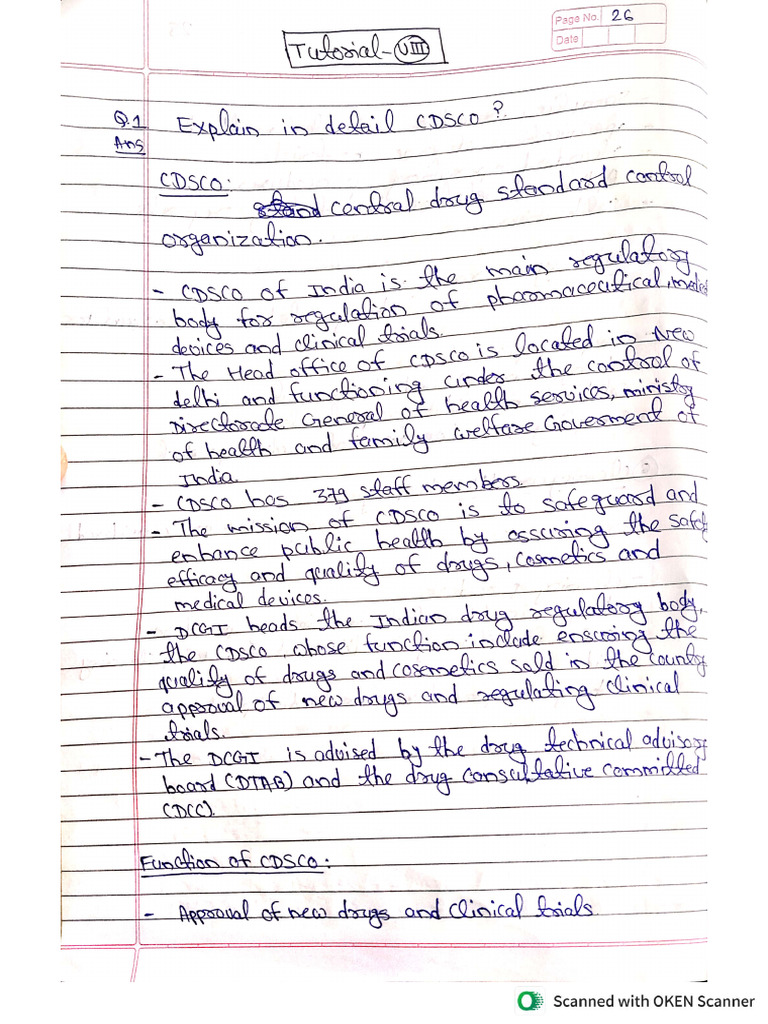 Page No. 26
Date
Tutorial - VIII
Q.1 Explain in detail CDSCO?
Ans
CDSCO:
central drug standard control
organization.
- CDSCO of India is the main regulatory
body for regulation of pharmaceutical, medical
devices and clinical trials.
- The Head office of CDSCO is located in New
delhi and functioning under the control of
Directorate General of health services, ministry
of health and family welfare Goverment of
India.
- CDSCO has 379 staff members.
- The mission of CDSCO is to safeguard and
enhance public health by assuring the safety
efficacy and quality of drugs, cosmetics and
medical devices.
- DCGI heads the Indian drug regulatory body,
the CDSCO whose function include ensuring the
quality of drugs and cosemetics sold in the country
approval of new drugs and regulating clinical
trials.
- The DCGI is advised by the drug technical advisory
board (DTAB) and the drug consultative committed
(DCC).
Function of CDSCO:
- Approval of new drugs and clinical trials.
Scanned with OKEN Scanner